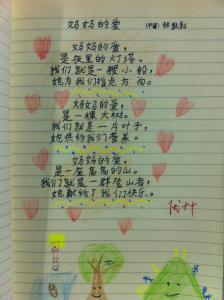 妈妈的爱
妈妈的爱，
是夜里的灯塔。
我们就是一艘小船，
她为我们指点方向。
妈妈的爱，
是一棵大树。
我们就是一片叶子，
她供给我们营养。
妈妈的爱，
是一座高高的山。
我们就是一群登山者，
她献给了我们快乐。